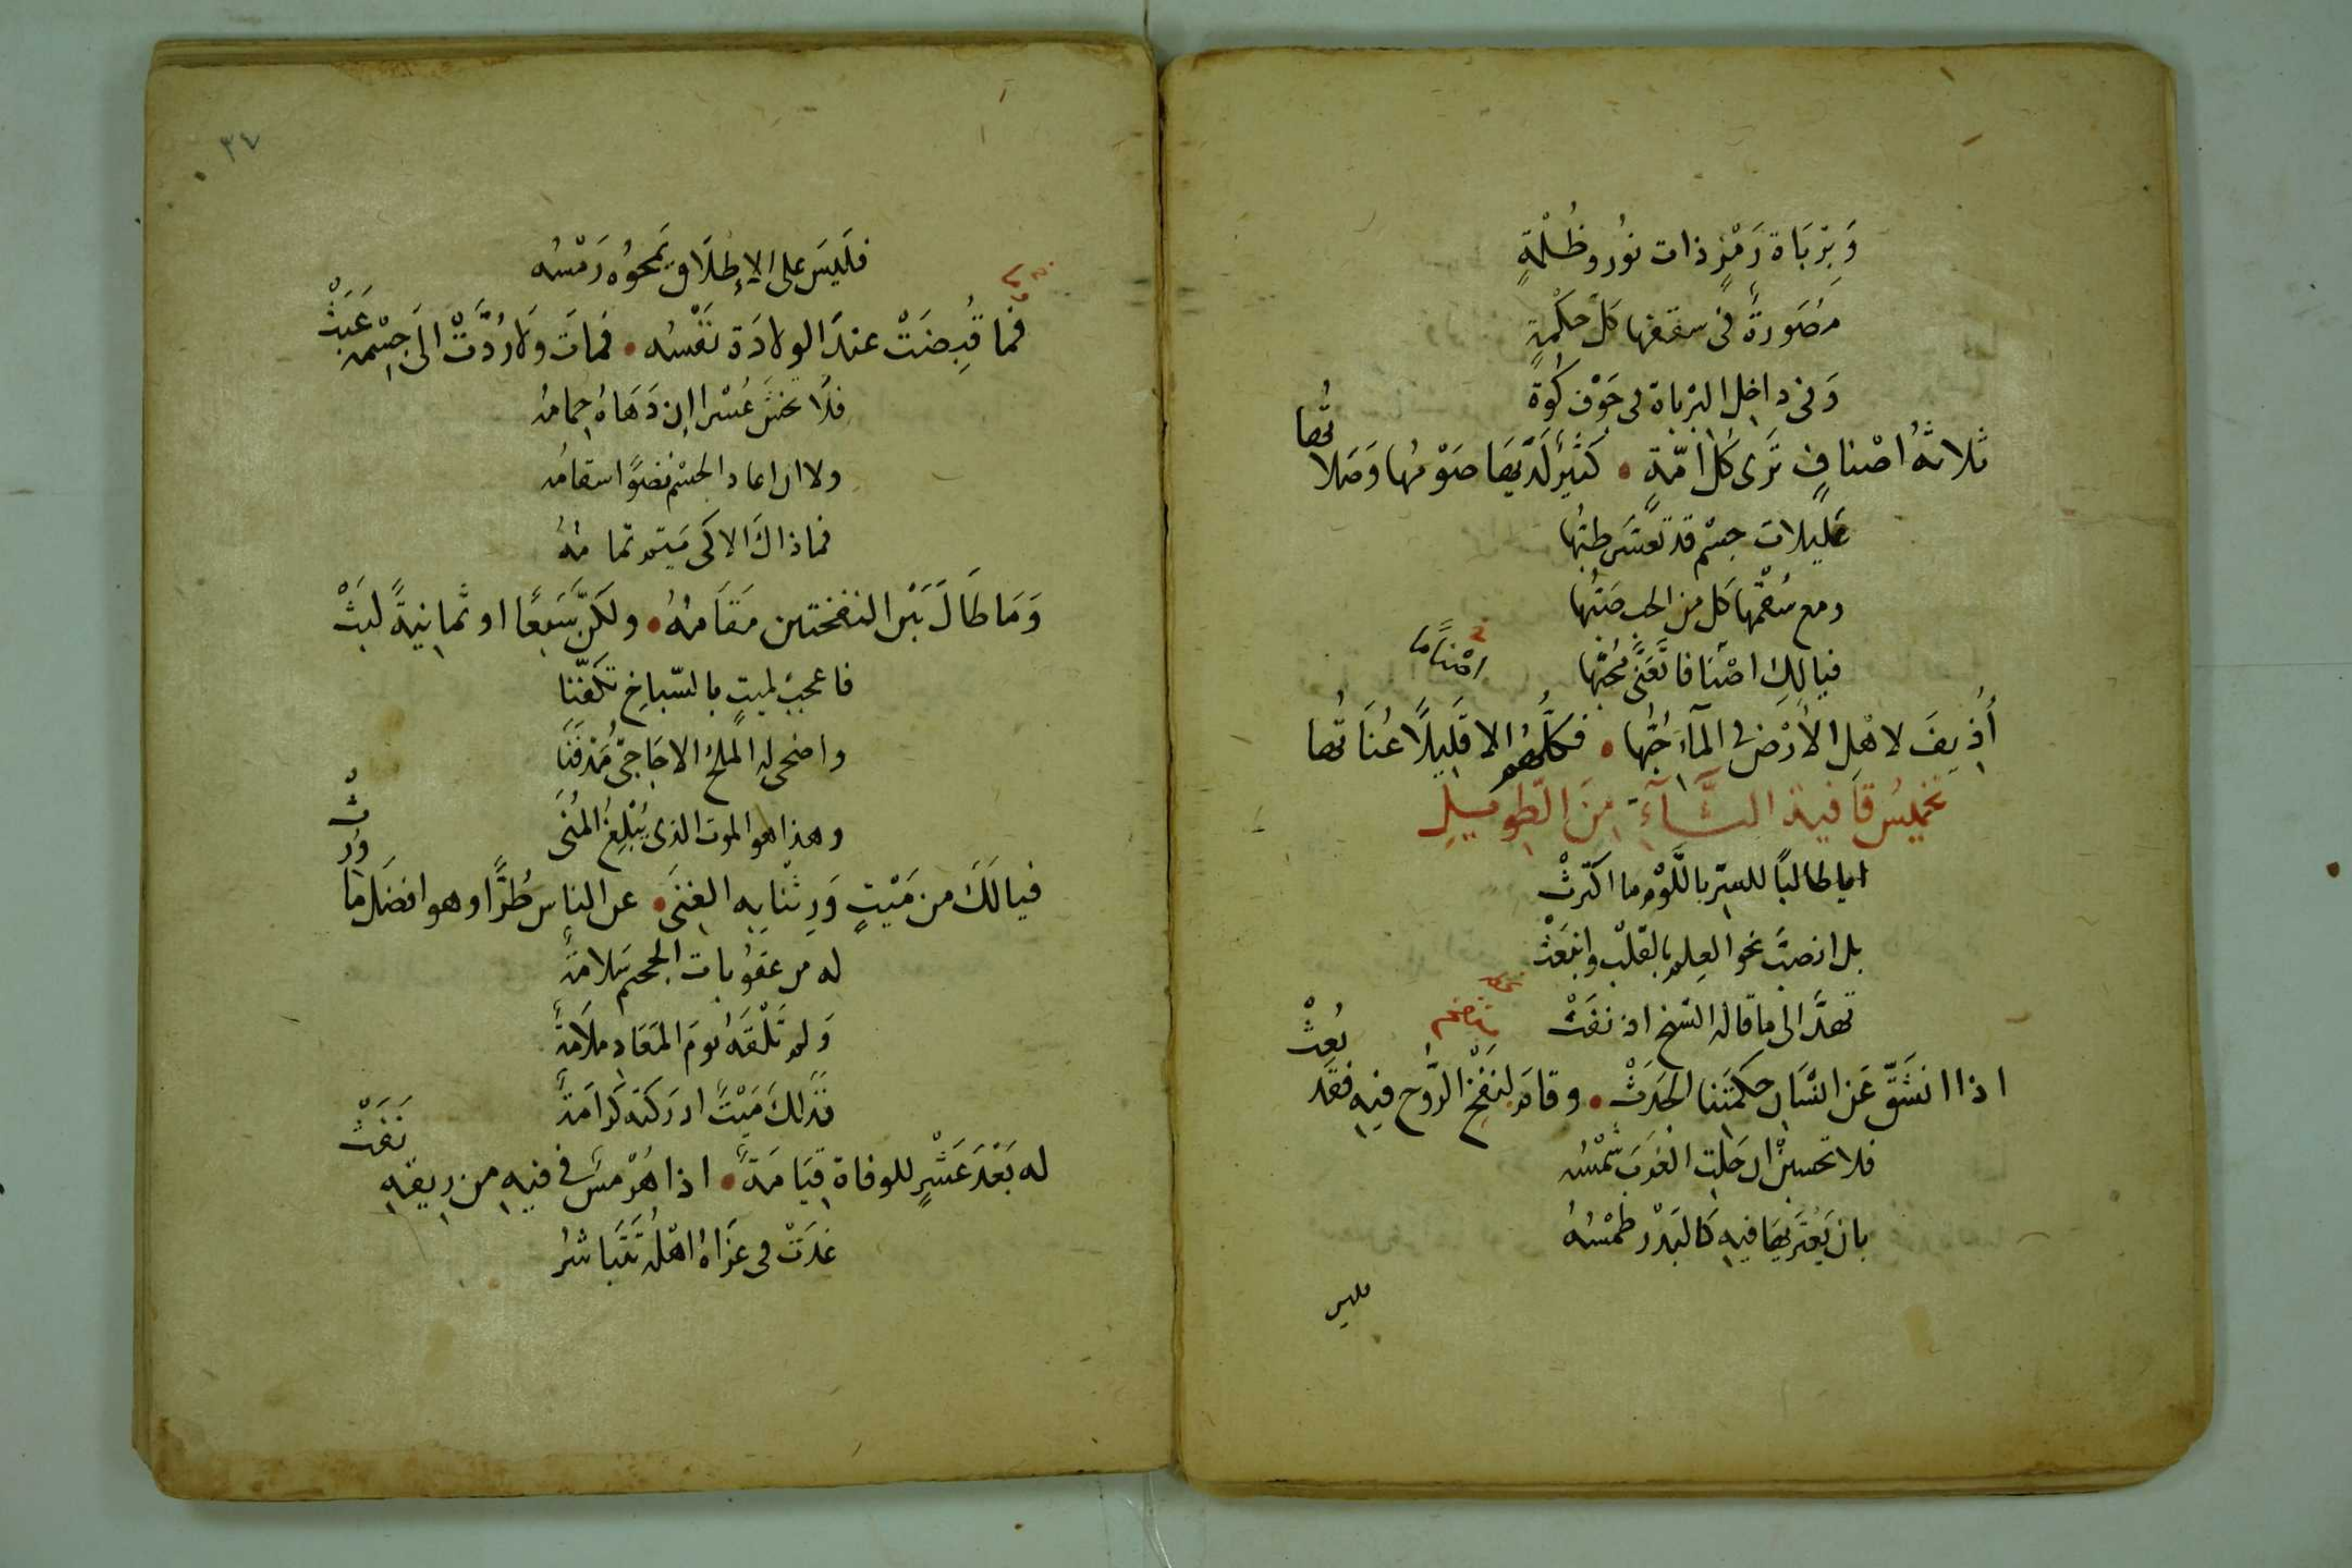 وَبِرْبَاة رَمْزٍ ذات نوُر وظُلْمَةٍ
مُصَورةٌ فى سقفها كلّ حكْمةٍ
وَفى داخل البَرْباة فى جَوْف كُوة
ثلاثهُ اصْنافٍ تَرى كل امّةٍ • كَثيرٌ لَدَيهَا صَوْمُها وَصَلاتُها
عَليلات جسْم قد تعسّر طبّها
ومع سُقْمها كل من الحب صَبُّها
فيالك اصْنافا تَعَنّى مُحبّها
اصْنَامًا
أُذِيفَ لاهْل الأرْض فى المآءِ حُبُّها • فكلُّهم الا قَلِيلًا عُنَاتُها
تخميسُ قافية الثَّآءِ مِنَ الطَّوِيلِ
ايا طالبًا للسِّرّ باللَّوْم ما اكترثْ
بل انصبَّ نحو العِلم بالقلْب وانبَعَثْ
تهدَّ الى ما قاله الشيخ اذ نفَثْ
اذا انشَقّ عَن انْسَان حكمَتِنا الحَدَثْ • وقام لنَفْخ الرُّوح فيهِ فقَد بُعِثْ
فلا تحسبنْ ان حَلت الغَربَ شمْسُه
بان يَعْتَريهَا فيهِ كالبَدْر طمْسُهُ
فليس
٣٤
فلَيسَ على الإطلَاق يَمحوُه رَمْسُه
فما قُبِضَتْ عندَ الولادَة نَفْسُه • فمَات وَلا رُدَّتْ الَى جسْمه عَبَثْ
فلَا تخشَ عُسْرا إن دَهَاهُ حِمامُه
ولا ان اعاد الجسْم نضوًا سقامُه
فما ذاكَ الا كى يَتِم تمامُهُ
وَمَا طَالَ بَيْن النفختين مَقَامُهُ • ولكنْ سَبعًا او ثمانيةً لبَثْ
فاعجبْ لميتٍ بالسّباخِ تكَفَّنَا
واضحى له الملحُ الاجَاجىّ مَدْفَنَا
وهذا هو الموت الذى يُبْلِغُ المُنَى
فيالَكَ من مَيْتٍ وَرِثنا بهِ الغِنَى • عن الناسِ طُرًّا وهو افضَل ما وُرِثْ
له من عقوُبات الجحيم سَلامَةٌ
وَلم تَلْقَهُ يَومَ المَعَادِ ملَامَةٌ
فذلكَ مَيْتٌ ادرَكتهُ كَرامَةٌ
له بَعْدَ عَشْرٍ للوفاة قِيَامَةٌ • اذا هُرْمسٌ فى فيهِ من ريقهِ نَفَثْ
غدَتْ فى عزَاهُ اهْلهُ تَتَباشرُ